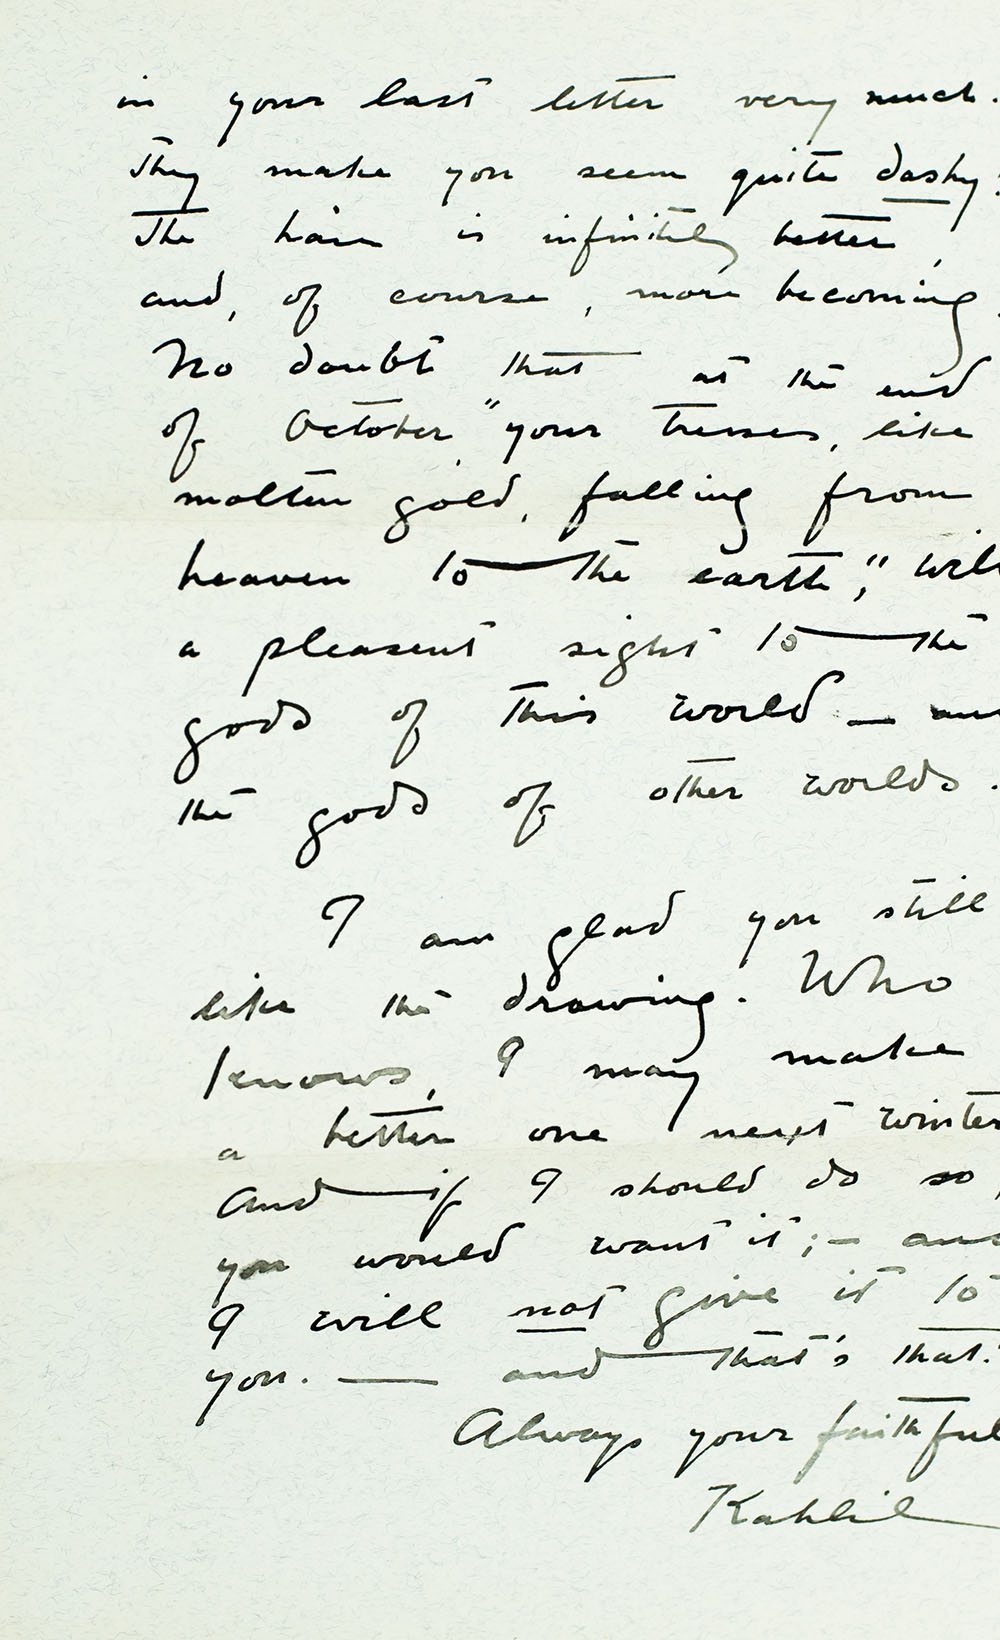 in your last letter very much.
They make you seem quite dashy!
The hair is infinitely better,
and, of course, more becoming.
No doubt that at the end
of October, "your tresses, like
molten gold, falling from
heaven to the earth," will
a pleasent sight to the
gods of this world — and
the gods of other worlds.
I am glad you still
like the drawing. Who
knows, I may make
a better one next winter
And if I should do so,
you would want it; — and
I will not give it to
you. — and that's that.
Always your faithful
Kahlil